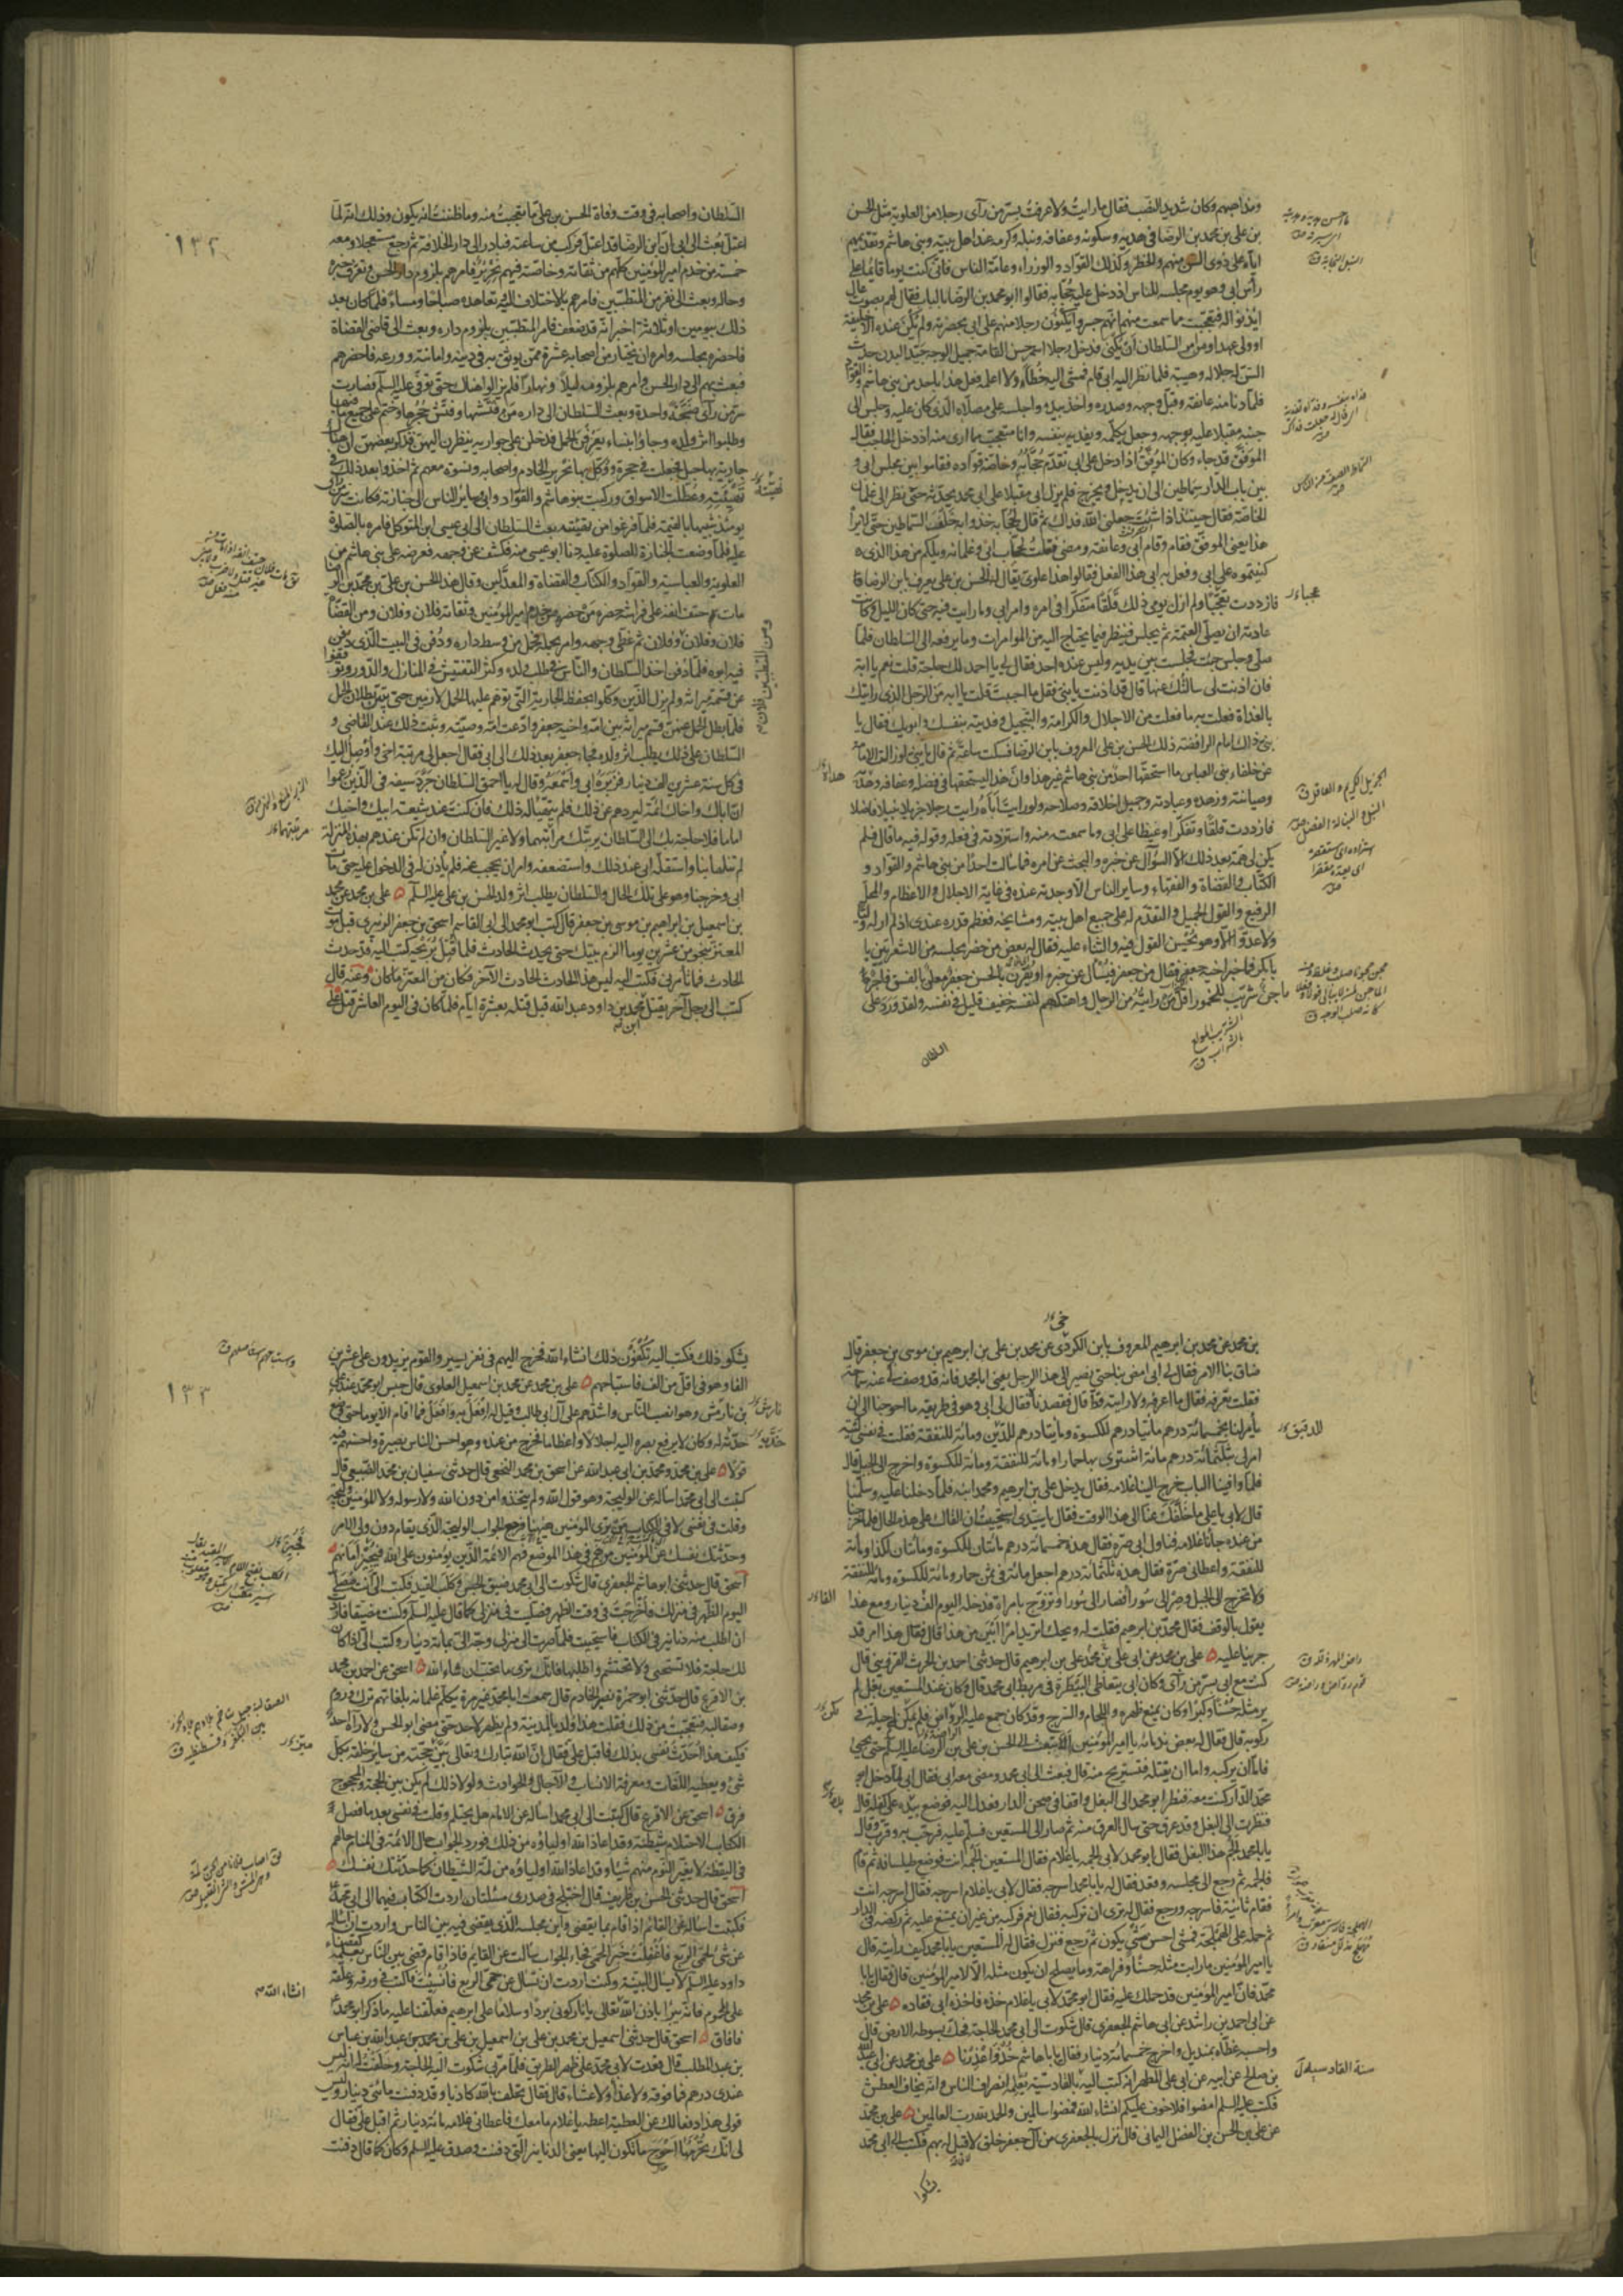 ومذاهبهم وكان شديد النصب فقال ما رايت ولا عرفت بسر من رأى رجلا من العلوية مثل الحسن
بن على بن محمد بن الرضا فى هديه وسكونه وعفافه ونبله وكرمه عند اهل بيته وبنى هاشم وتقديمهم
اياه على ذوى السن منهم والخطر وكذلك القواد والوزراء وعامة الناس فانى كنت يوما قائما على
رأس ابى وهو يوم مجلسه للناس اذ دخل عليه حجابه فقالوا ابو محمد بن الرضا بالباب فقال لهم بصوت عال
ايذنوا له فتعجبت مما سمعت منهم انهم جسروا يكنون رجلا منهم على ابى بحضرته ولم يكن عنده الا خليفة
او ولى عهد او من امر السلطان ان يكنى فدخل رجل اسمر حسن القامة جميل الوجه جيد البدن حدث
السن له جلاله وهيبة فلما نظر اليه ابى قام فمشى اليه خطآء ولا اعلم فعل هذا باحد من بنى هاشم والقواد
فلما دنا منه عانقه وقبل وجهه وصدره واخذ بيده واجلسه على مصلاه الذى كان عليه وجلس الى
جنبه مقبلا عليه بوجهه وجعل يكلمه ويفديه بنفسه وانا متعجب مما ارى منه اذ دخل الحاجب فقال
الموفق قد جاء وكان الموفق اذا دخل على ابى تقدم حجابه وخاصة قواده فقاموا بين مجلس ابى و
بين باب الدار سماطين الى ان يدخل ويخرج فلم يزل ابى مقبلا على ابى محمد يحدثه حتى نظر الى غلمان
الخاصة فقال حينئذ اذا شئت جعلنى الله فداك ثم قال لحجابه خذوا به خلف السماطين حتى لا يراه
هذا يعنى الموفق فقام وقام ابى وعانقه ومضى فقلت لحجاب ابى وغلمانه ويلكم من هذا الذى
كنيتموه على ابى وفعل به ابى هذا الفعل فقالوا هذا علوى يقال له الحسن بن على يعرف بابن الرضا
فازددت تعجبا ولم ازل يومى ذلك قلقا متفكرا فى امره وامر ابى وما رايت فيه حتى كان الليل وكانت
عادته ان يصلى العتمة ثم يجلس فينظر فيما يحتاج اليه من الموامرات وما يرفعه الى السلطان فلما
صلى وجلس جئت فجلست بين يديه وليس عنده احد فقال لى يا احمد لك حاجة قلت نعم يا ابة
فان اذنت لى سالتك عنها قال قد اذنت يا بنى فقل ما احببت قلت يا ابه من الرجل الذى رايتك
بالغداة فعلت به ما فعلت من الاجلال والكرامة والتبجيل وفديته بنفسك وابويك فقال يا
بنى ذاك امام الرافضة ذلك الحسن بن على المعروف بابن الرضا فسكت ساعة ثم قال يا بنى لو زالت الامامة
عن خلفاء بنى العباس ما استحقها احد من بنى هاشم غير هذا وان هذا ليستحقها فى فضله وعفافه وهديه
وصيانته وزهده وعبادته وجميل اخلاقه وصلاحه ولو رايت اباه رايت رجلا جزيلا نبيلا فاضلا
فازددت قلقا وتفكرا وغيظا على ابى وما سمعت منه واستزدته فى فعله وقوله فيه ما قال فلم
يكن لى همة بعد ذلك الا السؤال عن خبره والبحث عن امره فما سالت احدا من بنى هاشم والقواد و
الكتاب والقضاة والفقهاء وساير الناس الا وجدته عنده فى غاية الاجلال والاعظام والمحل
الرفيع والقول الجميل والتقدم له على جميع اهل بيته ومشايخه فعظم قدره عندى اذ لم ار له وليا
ولا عدوا الا وهو يحسن القول فيه والثناء عليه فقال له بعض من حضر مجلسه من الاشعريين يا
بابكر فما خبر اخيه جعفر فقال من جعفر فيسأل عن خبره او يقرن بالحسن جعفر معلن بالفسق فاجر
ماجن شريب للخمور اقل من رايته من الرجال واهتكهم لنفسه خفيف قليل فى نفسه ولقد ورد على
السلطان
السلطان واصحابه فى وقت وفاة الحسن بن على ما تعجبت منه وما ظننت انه يكون وذلك انه لما
اعتل بعث الى ابى ان ابن الرضا قد اعتل فركب من ساعته فبادر الى دار الخلافة ثم رجع مستعجلا ومعه
خمسة من خدم امير المؤمنين كلهم من ثقاته وخاصته فيهم نحرير فامرهم بلزوم دار الحسن وتعرف خبره
وحاله وبعث الى نفر من المتطببين فامرهم بالاختلاف اليه وتعاهده صباحا ومساء فلما كان بعد
ذلك بيومين او ثلاثة اخبر انه قد ضعف فامر المتطببين بلزوم داره وبعث الى قاضى القضاة
فاحضره مجلسه وامره ان يختار من اصحابه عشرة ممن يوثق به فى دينه وامانته وورعه فاحضرهم
فبعث بهم الى دار الحسن وامرهم بلزومه ليلا ونهارا فلم يزالوا هناك حتى توفى عليه السلم فصارت
سر من رأى ضجة واحدة وبعث السلطان الى داره من فتشها وفتش حجرها وختم على جميع ما فيها
وطلبوا اثر ولده وجاؤا بنساء يعرفن الحمل فدخلن على جواريه ينظرن اليهن فذكر بعضهن ان هناك
جارية بها حبل فجعلت فى حجرة ووكل بها نحرير الخادم واصحابه ونسوة معهم ثم اخذوا بعد ذلك فى
تهيئته وعطلت الاسواق وركبت بنو هاشم والقواد وابى وساير الناس الى جنازته فكانت سر من رأى
يومئذ شبيها بالقيمة فلما فرغوا من تهيئته بعث السلطان الى ابى عيسى ابن المتوكل فامره بالصلوة
عليه فلما وضعت الجنازة للصلوة عليه دنا ابو عيسى منه فكشف عن وجهه فعرضه على بنى هاشم من
العلوية والعباسية والقواد والكتاب والقضاة والمعدلين وقال هذا الحسن بن على بن محمد بن الرضا
مات حتف انفه على فراشه حضره من حضره من خدم امير المؤمنين وثقاته فلان وفلان ومن القضاة
فلان وفلان وفلان ثم غطى وجهه وامر بحمله فحمل من وسط داره ودفن فى البيت الذى دفن
فيه ابوه فلما دفن اخذ السلطان والناس فى طلب ولده وكثر التفتيش فى المنازل والدور وتوقفوا
عن قسمة ميراثه ولم يزل الذين وكلوا بحفظ الجارية التى توهم عليها الحمل لازمين حتى تبين بطلان الحمل
فلما بطل الحمل عنهن قسم ميراثه بين امه واخيه جعفر وادعت امه وصيته وثبت ذلك عند القاضى و
السلطان على ذلك يطلب اثر ولده فجاء جعفر بعد ذلك الى ابى فقال اجعل لى مرتبة اخى واوصل اليك
فى كل سنة عشرين الف دينار فزبره ابى واسمعه وقال له يا احمق السلطان جرد سيفه فى الذين زعموا
ان اباك واخاك ائمة ليردهم عن ذلك فلم يتهيأ له ذلك فان كنت عند شيعة ابيك واخيك
اماما فلا حاجة بك الى السلطان يرتبك مراتبهما ولا غير السلطان وان لم تكن عندهم بهذه المنزلة
لم تنلها بنا واستقله ابى عند ذلك واستضعفه وامر ان يحجب عنه فلم يأذن له فى الدخول عليه حتى مات
ابى وخرجنا وهو على تلك الحال والسلطان يطلب اثر ولد الحسن بن على عليه السلم ٥ على بن محمد عن محمد
بن اسمعيل بن ابراهيم بن موسى بن جعفر قال كتب ابو محمد الى ابى القاسم اسحق بن جعفر الزبيرى قبل موت
المعتز بنحو من عشرين يوما الزم بيتك حتى يحدث الحادث فلما قتل بريحة كتب اليه قد حدث
الحادث فما تأمرنى فكتب اليه ليس هذا الحادث الحادث الآخر فكان من المعتز ما كان وعنه قال
كتب الى رجل آخر يقتل محمد بن داود عبد الله قبل قتله بعشرة ايام فلما كان فى اليوم العاشر قتل على
١٣٢
بن محمد عن محمد بن ابرهيم المعروف بابن الكردى عن محمد بن على بن ابرهيم بن موسى بن جعفر قال
ضاق بنا الامر فقال لى ابى امض بنا حتى نصير الى هذا الرجل يعنى ابا محمد فانه قد وصف عنه سماحة
فقلت تعرفه فقال ما اعرفه ولا رايته قط قال فقصدناه فقال لى ابى وهو فى طريقه ما احوجنا الى ان
يأمر لنا بخمسمائة درهم مائتا درهم للكسوة ومائتا درهم للدين ومائة للنفقة فقلت فى نفسى ليته
امر لى بثلثمائة درهم مائة اشترى بها حمارا ومائة للنفقة ومائة للكسوة واخرج الى الجبل قال
فلما وافينا الباب خرج الينا غلامه فقال يدخل على بن ابرهيم ومحمد ابنه فلما دخلنا عليه وسلمنا
قال لابى يا على ما خلفك عنا الى هذا الوقت فقال يا سيدى استحييت ان القاك على هذه الحال فلما خرجنا
من عنده جاءنا غلامه فناول ابى صرة فقال هذه خمسمائة درهم مائتان للكسوة ومائتان للدين ومائة
للنفقة واعطانى صرة فقال هذه ثلثمائة درهم اجعل مائة فى ثمن حمار ومائة للكسوة ومائة للنفقة
ولا تخرج الى الجبل وصر الى سورا فصار الى سورا وتزوج بامراة فدخله اليوم الف دينار ومع هذا
يقول بالوقف فقال محمد بن ابرهيم فقلت له ويحك اتريد امرا ابين من هذا قال فقال هذا امر قد
جرينا عليه ٥ على بن محمد عن ابى على محمد بن على بن ابرهيم قال حدثنى احمد بن الحرث القزوينى قال
كنت مع ابى بسر من رأى وكان ابى يتعاطى البيطرة فى مربط ابى محمد قال وكان عند المستعين بغل لم
ير مثله حسنا وكبرا وكان يمنع ظهره واللجام والسرج وقد كان جمع عليه الرواض فلم يمكن لهم حيلة فى
ركوبه قال فقال له بعض ندمائه يا امير المؤمنين الا تبعث الى الحسن بن على بن الرضا عليه السلم حتى يجئ
فاما ان يركبه واما ان يقتله فتستريح منه قال فبعث الى ابى محمد ومضى معه ابى فقال ابى لما دخل ابو
محمد الدار كنت معه فنظر ابو محمد الى البغل واقفا فى صحن الدار فعدل اليه فوضع بيده على كفله قال
فنظرت الى البغل وقد عرق حتى سال العرق منه ثم صار الى المستعين فسلم عليه فرحب به وقرب وقال
يابا محمد الجم هذا البغل فقال ابو محمد لابى الجمه يا غلام فقال المستعين الجمه انت فوضع طيلسانه ثم قام
فالجمه ثم رجع الى مجلسه وقعد فقال له يابا محمد اسرجه فقال لابى يا غلام اسرجه فقال اسرجه انت
فقام ثانية فاسرجه ورجع فقال له ترى ان تركبه فقال نعم فركبه من غير ان يمتنع عليه ثم ركضه فى الدار
ثم حمله على الهملجة فمشى احسن مشى يكون ثم رجع فنزل فقال له المستعين يابا محمد كيف رايته قال
يا امير المؤمنين ما رايت مثله حسنا وفراهة وما يصلح ان يكون مثله الا لامير المؤمنين قال فقال يابا
محمد فان امير المؤمنين قد حملك عليه فقال ابو محمد لابى يا غلام خذه فاخذه ابى فقاده ٥ على بن محمد
عن ابى احمد بن راشد عن ابى هاشم الجعفرى قال شكوت الى ابى محمد الحاجة فحك بسوطه الارض قال
واحسبه غطاه بمنديل واخرج خمسمائة دينار فقال يابا هاشم خذ واعذرنا ٥ على بن محمد عن ابى عبد الله
بن صالح عن ابيه عن ابى على المطهر انه كتب اليه بالقادسية يعلمه انصراف الناس وانه يخاف العطش
فكتب عليه السلم امضوا فلا خوف عليكم انشاء الله فمضوا سالمين والحمد لله رب العالمين ٥ على بن محمد
عن على بن الحسن بن الفضل اليمانى قال نزل بالجعفرى من آل جعفر خلق لا قبل له بهم فكتب الى ابى محمد
يشكوا
يشكو ذلك فكتب اليه تكفون ذلك انشاء الله فخرج اليهم فى نفر يسير والقوم يزيدون على عشرين
الفا وهو فى اقل من الف فاستباحهم ٥ على بن محمد عن محمد بن اسمعيل العلوى قال حبس ابو محمد عند على
بن نارمش وهو انصب الناس واشدهم على آل ابى طالب وقيل له افعل به وافعل فما اقام الا يوما حتى وضع
خديه له وكان لا يرفع بصره اليه اجلالا واعظاما فخرج من عنده وهو احسن الناس بصيرة واحسنهم فيه
قولا ٥ على بن محمد ومحمد بن ابى عبد الله عن اسحق بن محمد النخعى قال حدثنى سفيان بن محمد الضبعى قال
كتبت الى ابى محمد اساله عن الوليجة وهو قول الله ولم يتخذوا من دون الله ولا رسوله ولا المؤمنين وليجة
وقلت فى نفسى لا فى الكتاب من ترى المؤمنين هيهنا فرجع الجواب الوليجة الذى يقام دون ولى الامر
وحدثتك نفسك عن المؤمنين من هم فى هذا الموضع فهم الائمة الذين يؤمنون على الله فيجيز امانهم
اسحق قال حدثنى ابو هاشم الجعفرى قال شكوت الى ابى محمد ضيق الحبس وكلب القيد فكتب الى انت تصلى
اليوم الظهر فى منزلك فاخرجت فى وقت الظهر فصليت فى منزلى كما قال عليه السلم وكنت مضيقا فاردت
ان اطلب منه دنانير فى الكتاب فاستحييت فلما صرت الى منزلى وجه الى بمائة دينار وكتب الى اذا كان
لك حاجة فلا تستحى ولا تحتشم واطلبها فانك ترى ما تحب انشاء الله ٥ اسحق عن احمد بن محمد
بن الاقرع قال حدثنى ابو حمزة نصير الخادم قال سمعت ابا محمد غير مرة يكلم غلمانه بلغاتهم ترك وروم
وصقالبه فتعجبت من ذلك فقلت هذا ولد بالمدينة ولم يظهر لاحد حتى مضى ابو الحسن ولا رآه احد
فكيف هذا احدث نفسى بذلك فاقبل على فقال ان الله تبارك وتعالى بين حجته من ساير خلقه بكل
شئ ويعطيه اللغات ومعرفة الانساب والآجال والحوادث ولولا ذلك لم يكن بين الحجة والمحجوج
فرق ٥ اسحق عن الاقرع قال كتبت الى ابى محمد اساله عن الامام هل يحتلم وقلت فى نفسى بعد ما فصل
الكتاب الاحتلام شيطنة وقد اعاذ الله اولياؤه من ذلك فورد الجواب حال الائمة فى المنام حالهم
فى اليقظة لا يغير النوم منهم شيئا وقد اعاذ الله اولياءه من لمة الشيطان كما حدثتك نفسك ٥
اسحق قال حدثنى الحسن بن ظريف قال اختلج فى صدرى مسئلتان اردت الكتاب فيهما الى ابى محمد
فكتبت اساله عن القائم اذا قام بما يقضى واين مجلسه الذى يقضى فيه بين الناس واردت ان اساله
عن شئ لحمى الربع فاغفلت خبر الحمى فجاء الجواب سالت عن القايم فاذا قام قضى بين الناس بعلمه كقضاء
داود عليه السلم لا يسال البينة وكنت اردت ان تسال عن حمى الربع فانسيت فاكتب فى ورقه وعلقه
على المحموم فانه يبرا باذن الله تعالى يا نار كونى بردا وسلاما على ابرهيم فعلقنا عليه ما ذكر ابو محمد
فافاق ٥ اسحق قال حدثنى اسمعيل بن محمد بن على بن اسمعيل بن على بن محمد بن عبد الله بن عباس
بن عبد المطلب قال قعدت لابى محمد على ظهر الطريق فلما مر بى شكوت اليه الحاجة وحلفت له انه ليس
عندى درهم فما فوقه ولا غداء ولا عشاء قال فقال تحلف بالله كاذبا وقد دفنت مائتى دينار وليس
قولى هذا دفعا لك عن العطية اعطه يا غلام ما معك فاعطانى غلامه مائة دينار ثم اقبل على فقال
لى انك تحرمها احوج ما تكون اليها يعنى الدنانير التى دفنت وصدق عليه السلم وكان كما قال دفنت
١٣٣